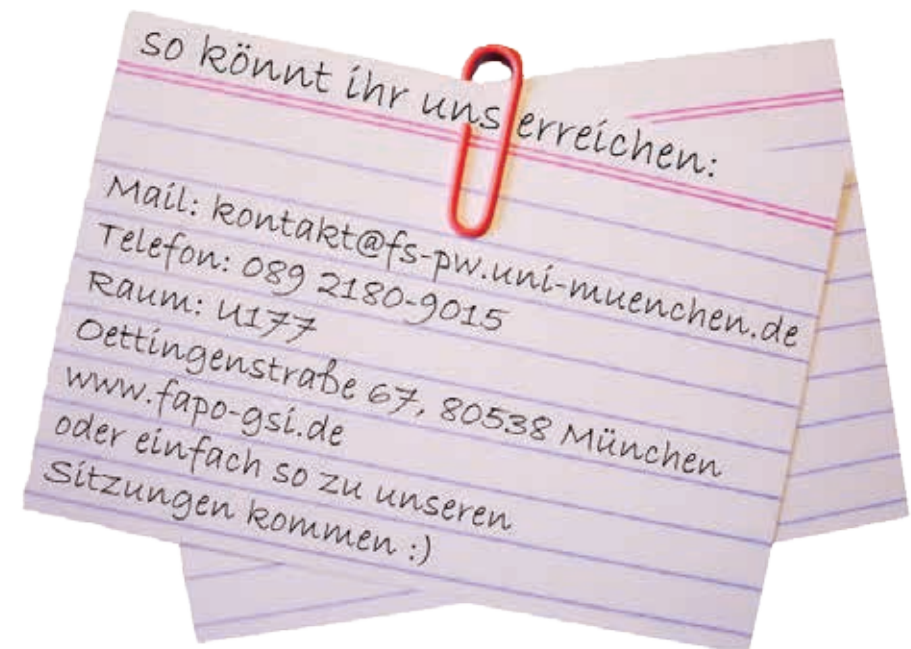 so könnt ihr uns erreichen:
Mail: kontakt@fs-pw.uni-muenchen.de
Telefon: 089 2180-9015
Raum: U177
Oettingenstraße 67, 80538 München
www.fapo-gsi.de
oder einfach so zu unseren
Sitzungen kommen :)